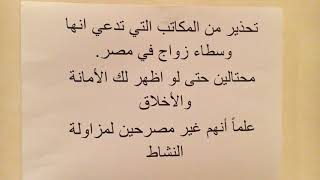 تحذير من المكاتب التي تدعي انها
وسطاء زواج في مصر.
محتالين حتى لو اظهر لك الأمانة
والأخلاق
علماً أنهم غير مصرحين لمزاولة
النشاط